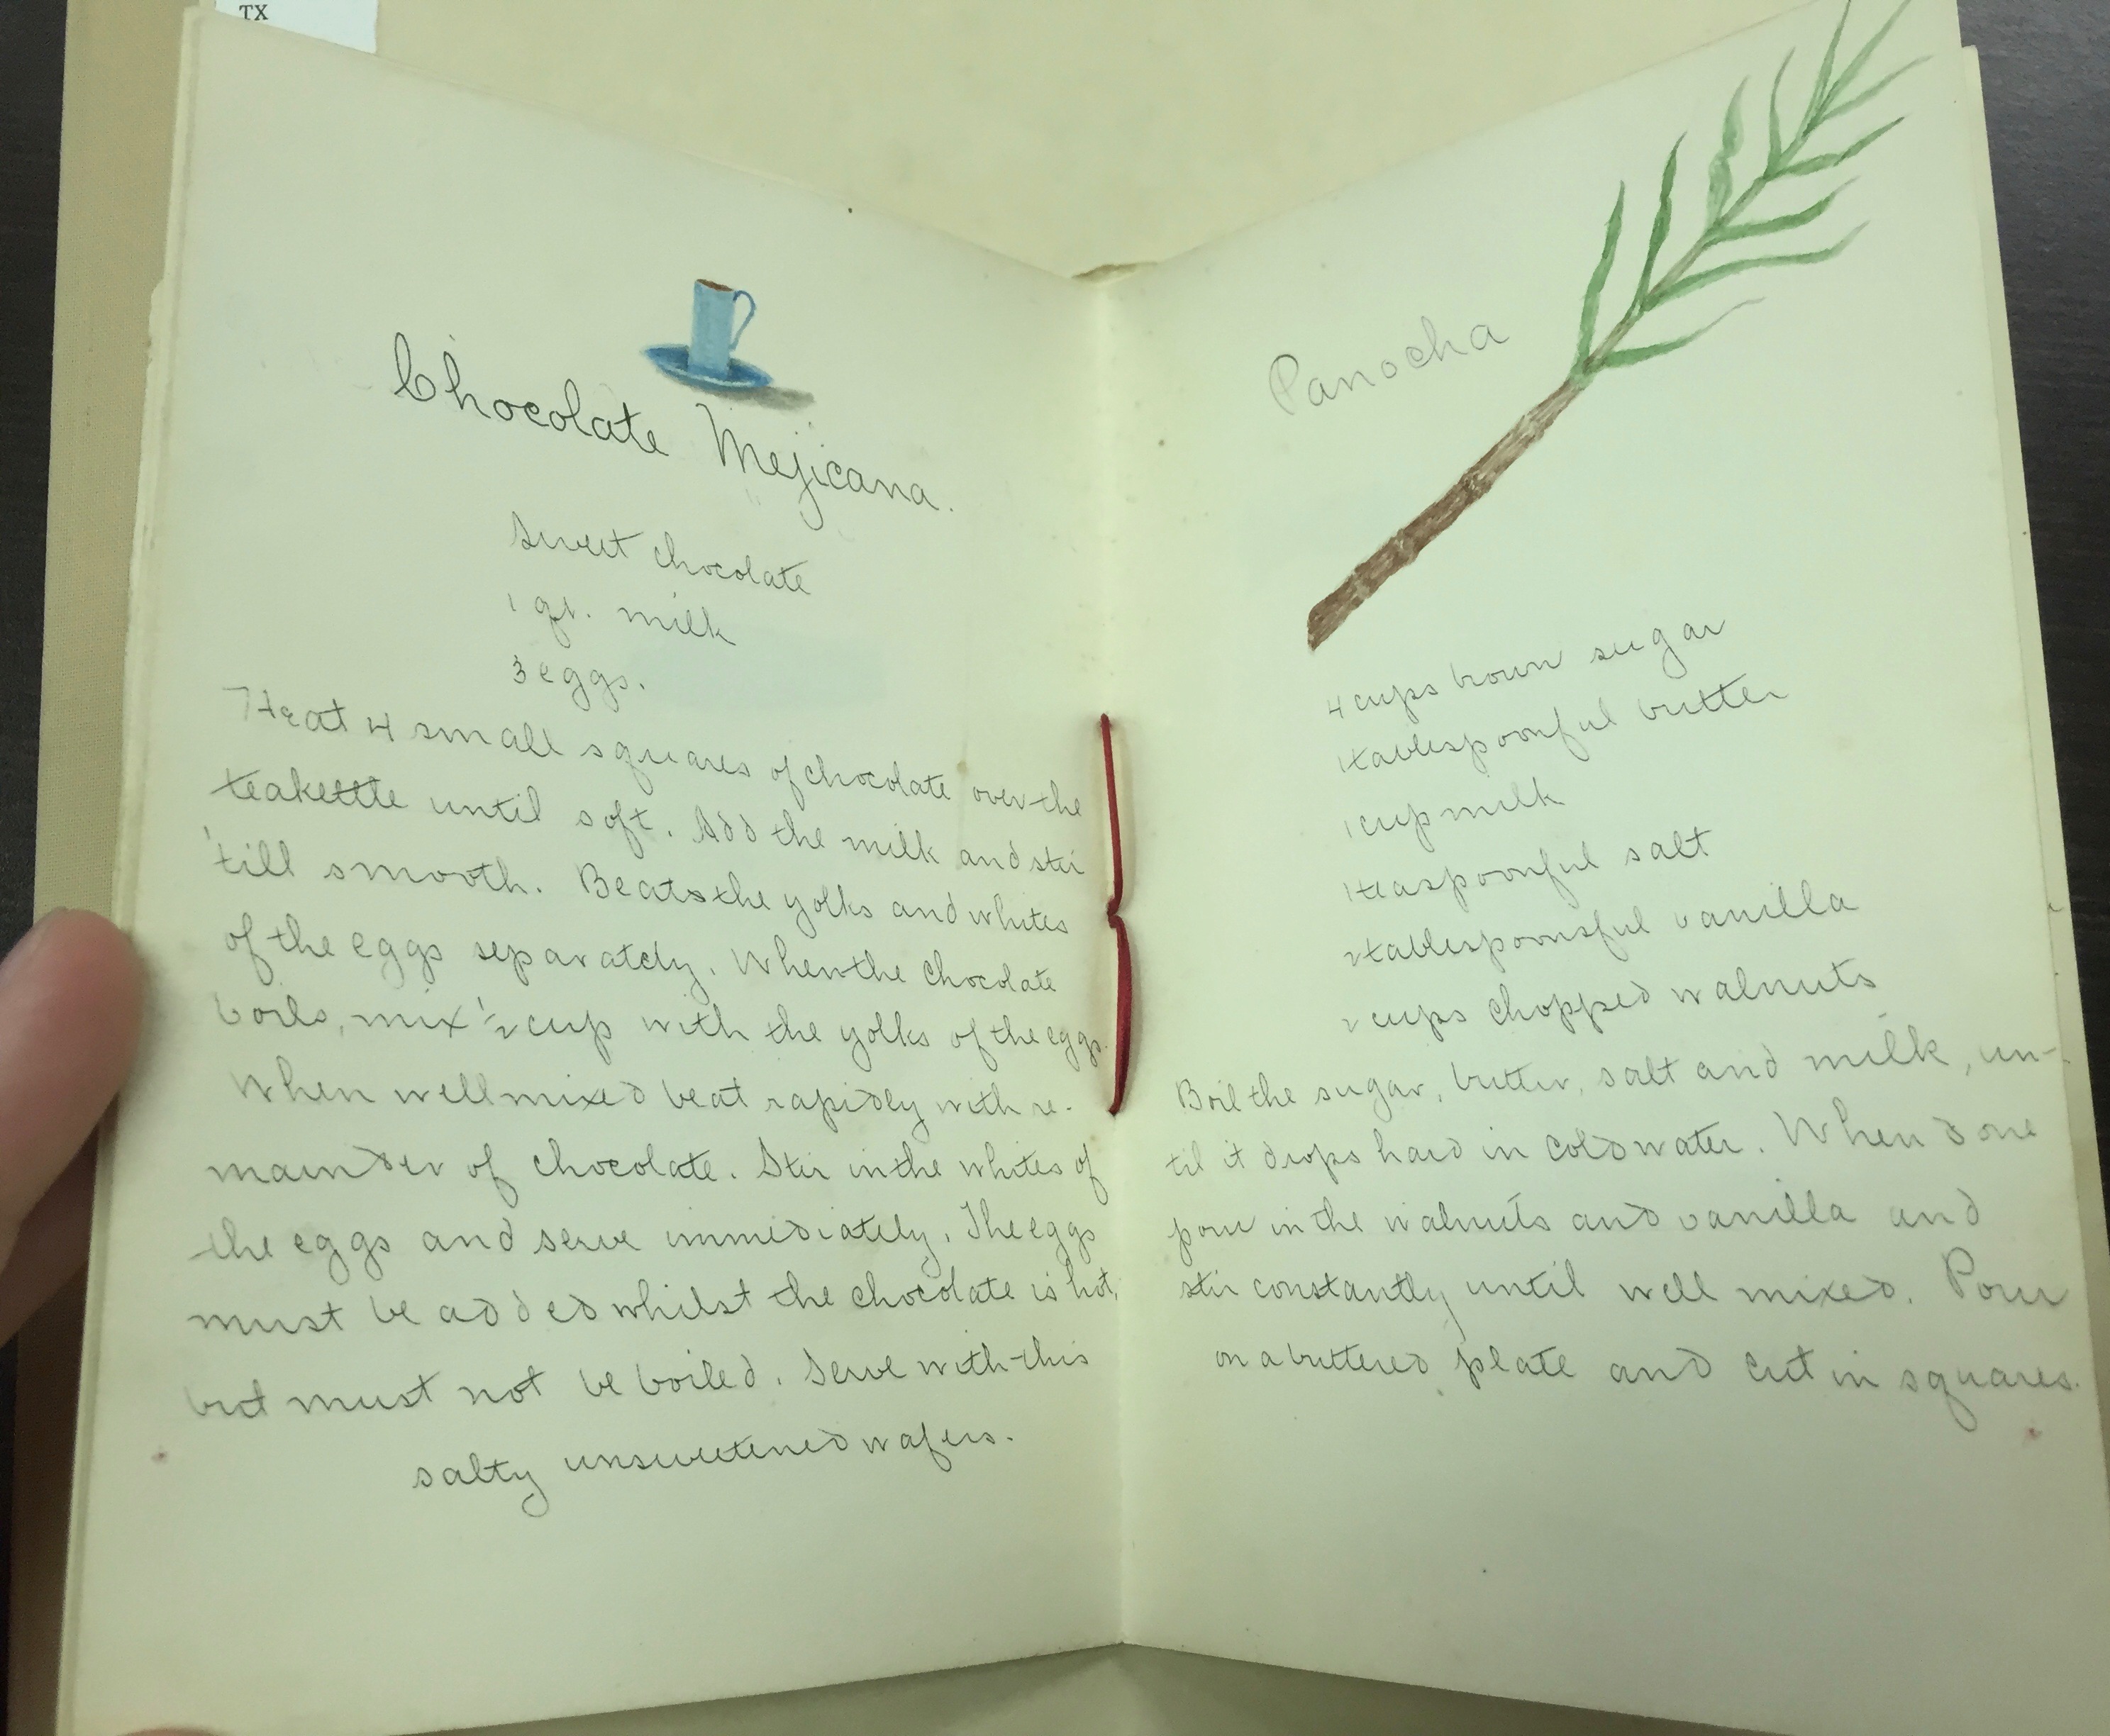 TX
Chocolate Mejicana.
Sweet chocolate
1 qt. milk
3 eggs.
Heat 4 small squares of chocolate over the
teakettle until soft. Add the milk and stir
'till smooth. Beat the yolks and whites
of the eggs separately. When the chocolate
boils, mix 1/2 cup with the yolks of the eggs.
When well mixed beat rapidly with re-
mainder of chocolate. Stir in the whites of
the eggs and serve immediately. The eggs
must be added whilst the chocolate is hot,
but must not be boiled. Serve with this
salty unsweetened wafers.
Panocha
4 cups brown sugar
1 tablespoonful butter
1 cup milk
1 teaspoonful salt
2 tablespoonsful vanilla
2 cups chopped walnuts
Boil the sugar, butter, salt and milk, un-
til it drops hard in cold water. When done
pour in the walnuts and vanilla and
stir constantly until well mixed. Pour
on a buttered plate and cut in squares.